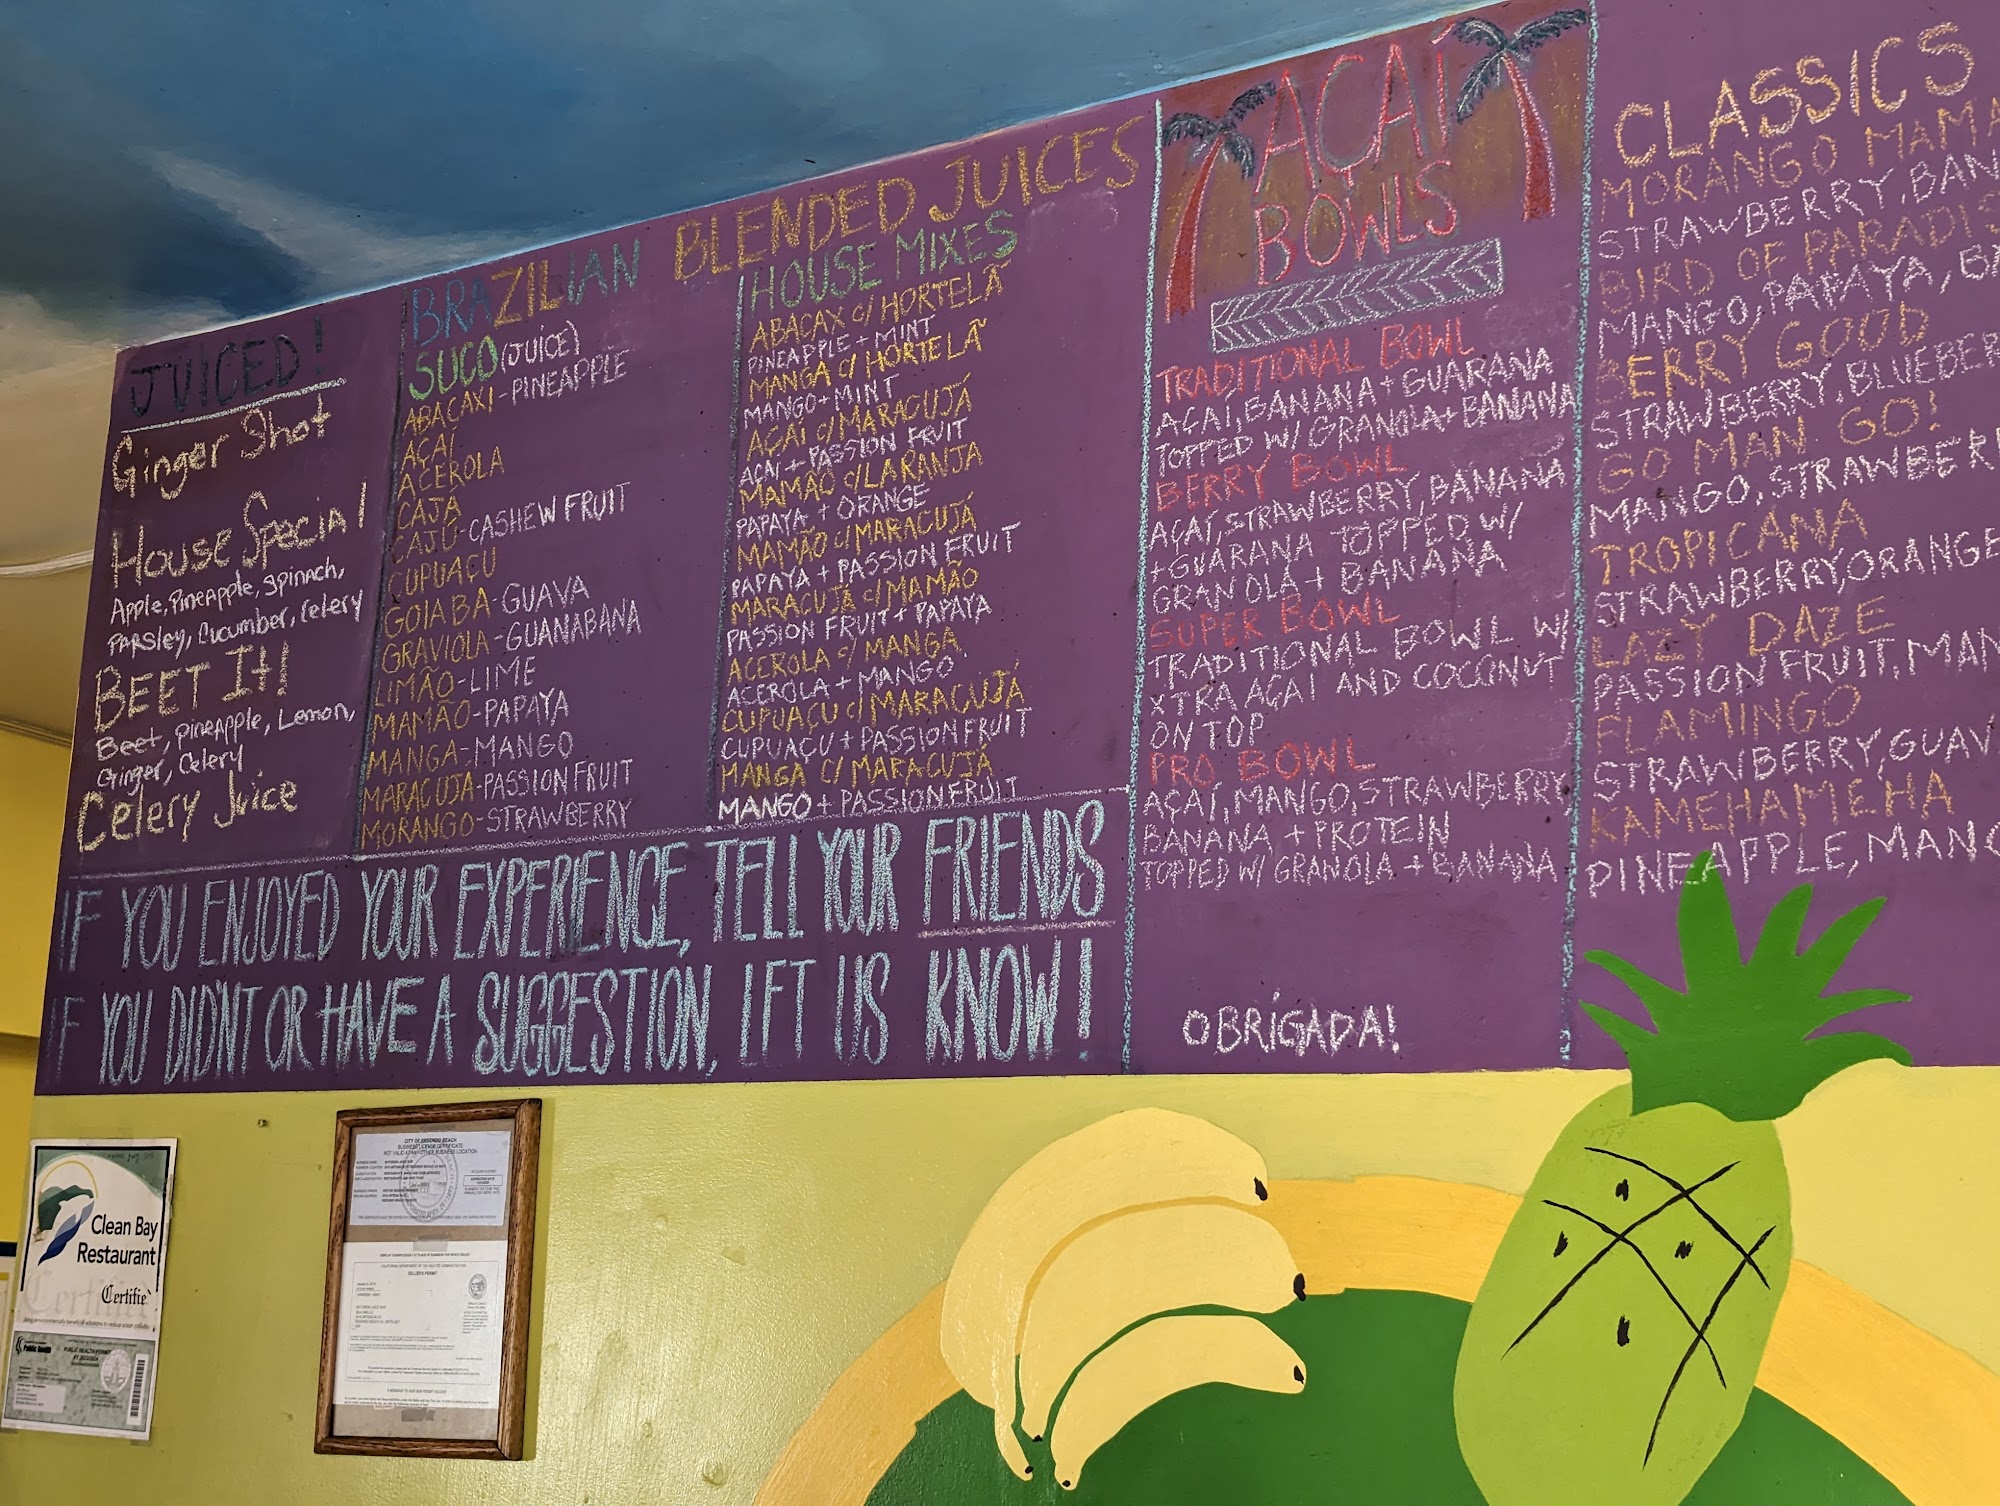 JUICED!
Ginger Shot
House Special
Apple, Pineapple, Spinach,
Parsley, Cucumber, Celery
BEET It!
Beet, Pineapple, Lemon,
Ginger, Celery
Celery Juice
BRAZILIAN BLENDED JUICES
SUCO (JUICE)
ABACAXI-PINEAPPLE
AÇAÍ
ACEROLA
CAJÁ
CAJÚ-CASHEW FRUIT
CUPUAÇU
GOIABA-GUAVA
GRAVIOLA-GUANABANA
LIMÃO-LIME
MAMÃO-PAPAYA
MANGA-MANGO
MARACUJA-PASSION FRUIT
MORANGO-STRAWBERRY
HOUSE MIXES
ABACAX c/ HORTELÃ
PINEAPPLE + MINT
MANGA c/ HORTELÃ
MANGO + MINT
AÇAÍ c/ MARACUJÁ
AÇAI + PASSION FRUIT
MAMÃO c/ LARANJA
PAPAYA + ORANGE
MAMÃO c/ MARACUJÁ
PAPAYA + PASSION FRUIT
MARACUJÁ c/ MAMÃO
PASSION FRUIT + PAPAYA
ACEROLA c/ MANGA
ACEROLA + MANGO
CUPUAÇU c/ MARACUJÁ
CUPUAÇU + PASSION FRUIT
MANGA C/ MARACUJÁ
MANGO + PASSION FRUIT
IF YOU ENJOYED YOUR EXPERIENCE, TELL YOUR FRIENDS
IF YOU DIDN'T OR HAVE A SUGGESTION, LET US KNOW!
AÇAÍ
BOWLS
TRADITIONAL BOWL
AÇAÍ, BANANA + GUARANA
TOPPED W/ GRANOLA + BANANA
BERRY BOWL
AÇAÍ, STRAWBERRY, BANANA
+ GUARANA TOPPED W/
GRANOLA + BANANA
SUPER BOWL
TRADITIONAL BOWL W/
XTRA AÇAI AND COCONUT
ON TOP
PRO BOWL
AÇAÍ, MANGO, STRAWBERRY
BANANA + PROTEIN
TOPPED W/ GRANOLA + BANANA
OBRÍGADA!
CLASSICS
MORANGO MAMA
STRAWBERRY, BAN
BIRD OF PARADIS
MANGO, PAPAYA, BA
BERRY GOOD
STRAWBERRY, BLUEBER
GO MAN GO!
MANGO, STRAWBERR
TROPICANA
STRAWBERRY, ORANGE
LAZY DAZE
PASSION FRUIT, MAN
FLAMINGO
STRAWBERRY, GUAV
KAMEHAMEHA
PINEAPPLE, MANG
Clean Bay
Restaurant
Certifie
Public Health
PUBLIC HEALTH PERMIT
CITY OF REDONDO BEACH
BUSINESS LICENSE CERTIFICATE
SELLER'S PERMIT